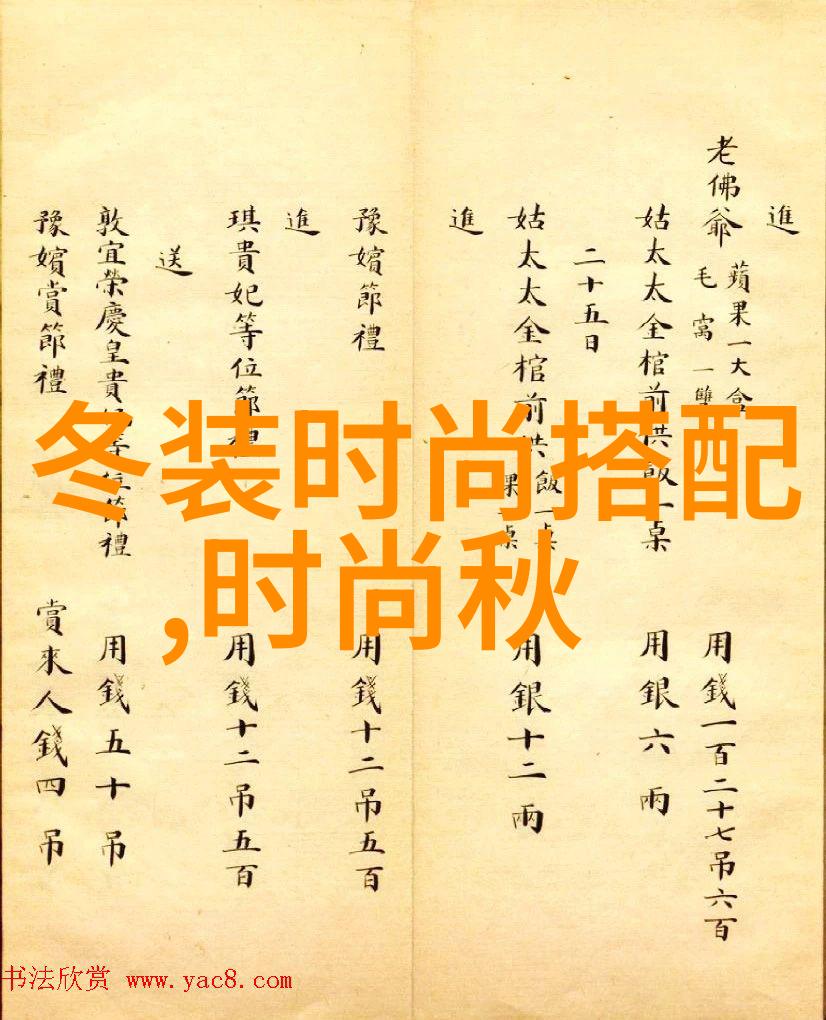 進
老佛爺 蘋果一大盒 毛窩一雙 用錢一百二十七吊六百
姑太太金棺前供飯一桌 用銀六兩
二十五日
姑太太金棺前供 飯一桌 果一桌 用銀十二兩
進
豫嬪節禮 用錢十二吊五百
進
琪貴妃等位節禮 用錢十二吊五百
送
敦宜榮慶皇貴妃等位節禮 用錢五十吊
豫嬪賞節禮 賞來人錢四吊
冬装时尚搭配
,时尚秋
书法欣赏 www.yac8.com